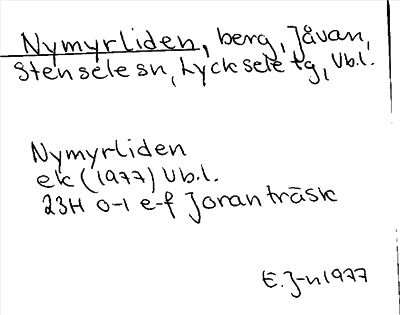 Nymyrliden, berg, Jåvan,
Stensele sn, Lycksele tg, Vb.l.
Nymyrliden
ek (1977) Vb.l.
23H 0-1 e-f Joranträsk
E. J-n 1977